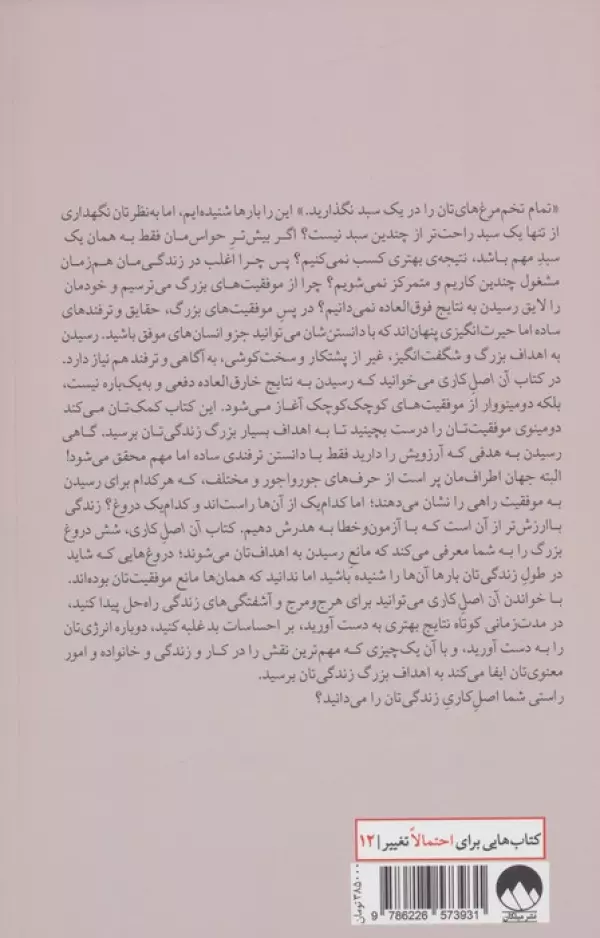 «تمام تخم‌مرغ‌های‌تان را در یک سبد نگذارید.» این را بارها شنیده‌ایم، اما به‌نظرتان نگهداری
از تنها یک سبد راحت‌تر از چندین سبد نیست؟ اگر بیش‌ترِ حواس‌مان فقط به همان یک
سبدِ مهم باشد، نتیجه‌ی بهتری کسب نمی‌کنیم؟ پس چرا اغلب در زندگی‌مان هم‌زمان
مشغول چندین کاریم و متمرکز نمی‌شویم؟ چرا از موفقیت‌های بزرگ می‌ترسیم و خودمان
را لایق رسیدن به نتایج فوق‌العاده نمی‌دانیم؟ در پسِ موفقیت‌های بزرگ، حقایق و ترفندهای
ساده اما حیرت‌انگیزی پنهان‌اند که با دانستن‌شان می‌توانید جزو انسان‌های موفق باشید. رسیدن
به اهداف بزرگ و شگفت‌انگیز، غیر از پشتکار و سخت‌کوشی، به آگاهی و ترفند هم نیاز دارد.
در کتاب آن اصلِ‌کاری می‌خوانید که رسیدن به نتایج خارق‌العاده دفعی و به‌یک‌باره نیست،
بلکه دومینووار از موفقیت‌های کوچک‌کوچک آغاز می‌شود. این کتاب کمک‌تان می‌کند
دومینوی موفقیت‌تان را درست بچینید تا به اهداف بسیار بزرگ زندگی‌تان برسید. گاهی
رسیدن به هدفی که آرزویش را دارید فقط با دانستن ترفندی ساده اما مهم محقق می‌شود!
البته جهان اطراف‌مان پر است از حرف‌های جورواجور و مختلف، که هرکدام برای رسیدن
به موفقیت راهی را نشان می‌دهند؛ اما کدام‌یک از آن‌ها راست‌اند و کدام‌یک دروغ؟ زندگی
باارزش‌تر از آن است که با آزمون‌وخطا به هدرش دهیم. کتاب آن اصلِ‌کاری، شش دروغ
بزرگ را به شما معرفی می‌کند که مانع رسیدن به اهداف‌تان می‌شوند؛ دروغ‌هایی که شاید
در طولِ زندگی‌تان بارها آن‌ها را شنیده باشید اما ندانید که همان‌ها مانع موفقیت‌تان بوده‌اند.
با خواندن آن اصلِ‌کاری می‌توانید برای هرج‌ومرج و آشفتگی‌های زندگی راه‌حل پیدا کنید،
در مدت‌زمانی کوتاه نتایج بهتری به دست آورید، بر احساسات بد غلبه کنید، دوباره انرژی‌تان
را به دست آورید، و با آن یک‌چیزی که مهم‌ترین نقش را در کار و زندگی و خانواده و امور
معنوی‌تان ایفا می‌کند به اهداف بزرگ زندگی‌تان برسید.
راستی شما اصلِ‌کاریِ زندگی‌تان را می‌دانید؟
کتاب‌هایی برای احتمالاً تغییر | ۱۲
۳۸۵۰۰۰ تومان
9 786226 573931
نشر میلکان